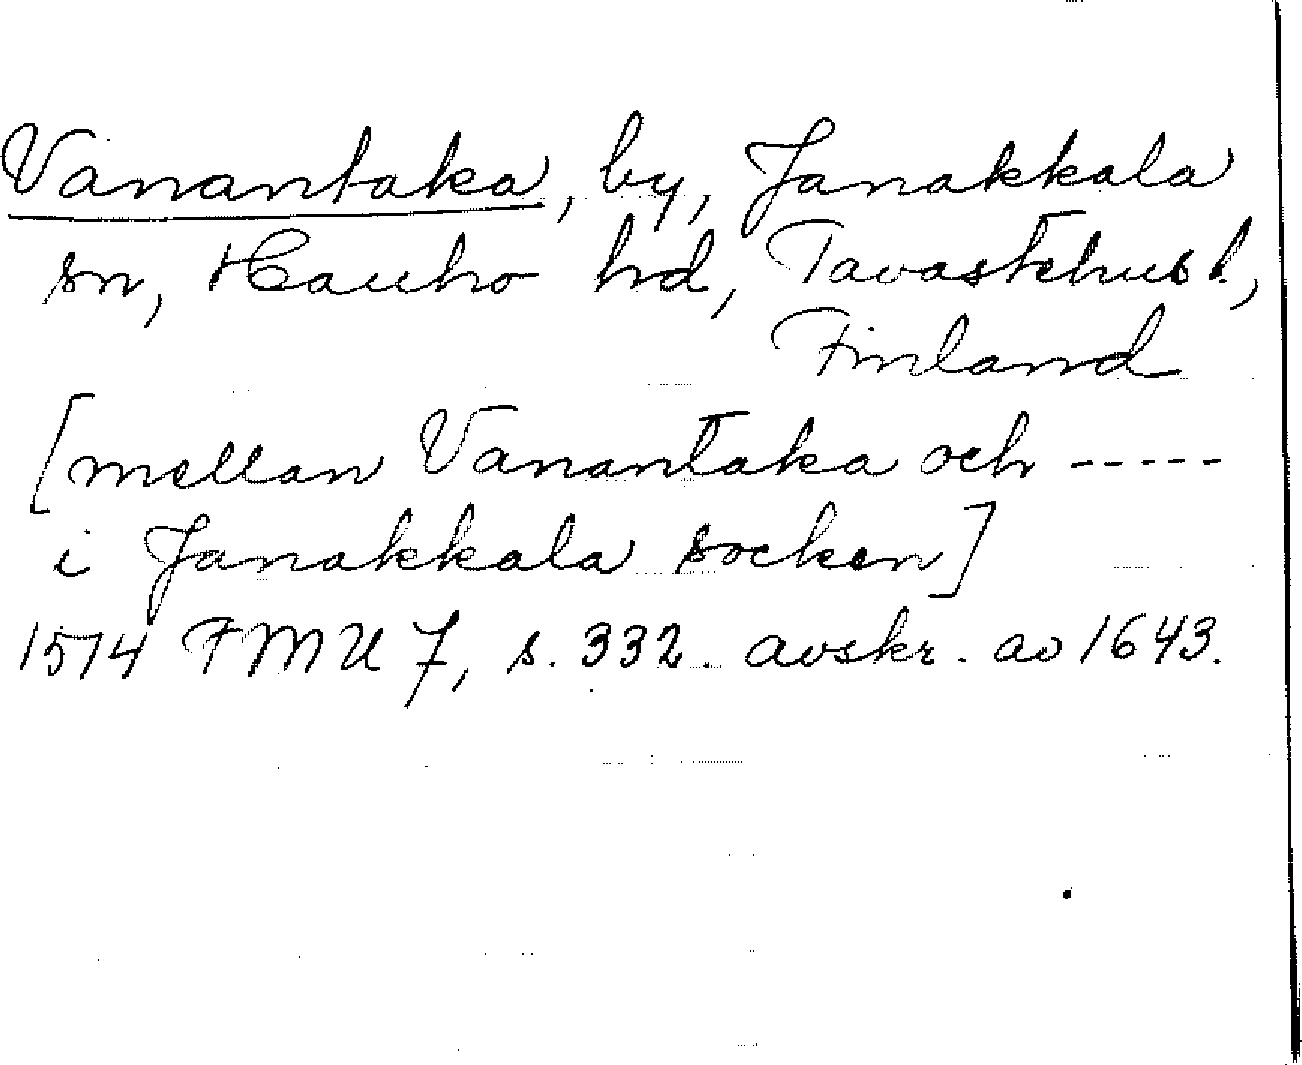 Vanantaka, by, Janakkala
sn, Hauho hd, Tavastehus l.,
Finland
[mellan Vanantaka och -----
i Janakkala socken]
1514 FMU 7, s. 332. avskr. av 1643.